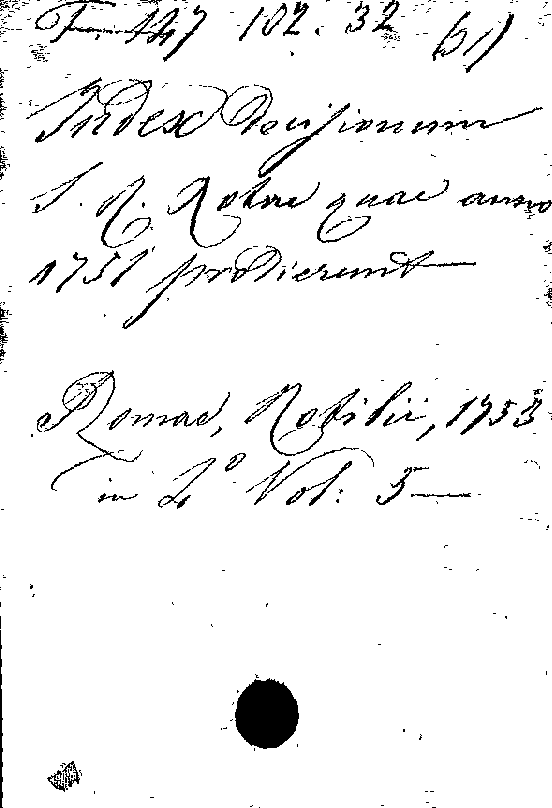 102. 32 (51)
Index Decisionum
S. R. Rotae quae anno
1751 prodierunt
Romae, 1753
in 4º Vol: 5